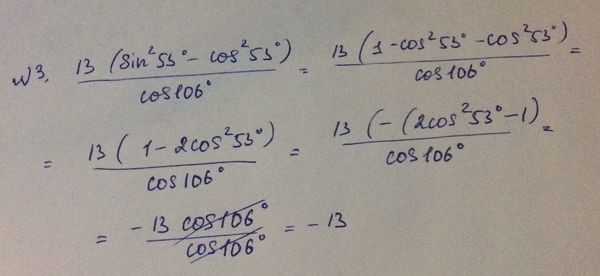 N3. 13 (sin²53° - cos²53°) / cos106° = 13 (1 - cos²53° - cos²53°) / cos106° =
= 13 (1 - 2cos²53°) / cos106° = 13 (-(2cos²53° - 1) / cos106° =
= -13 cos106° / cos106° = -13